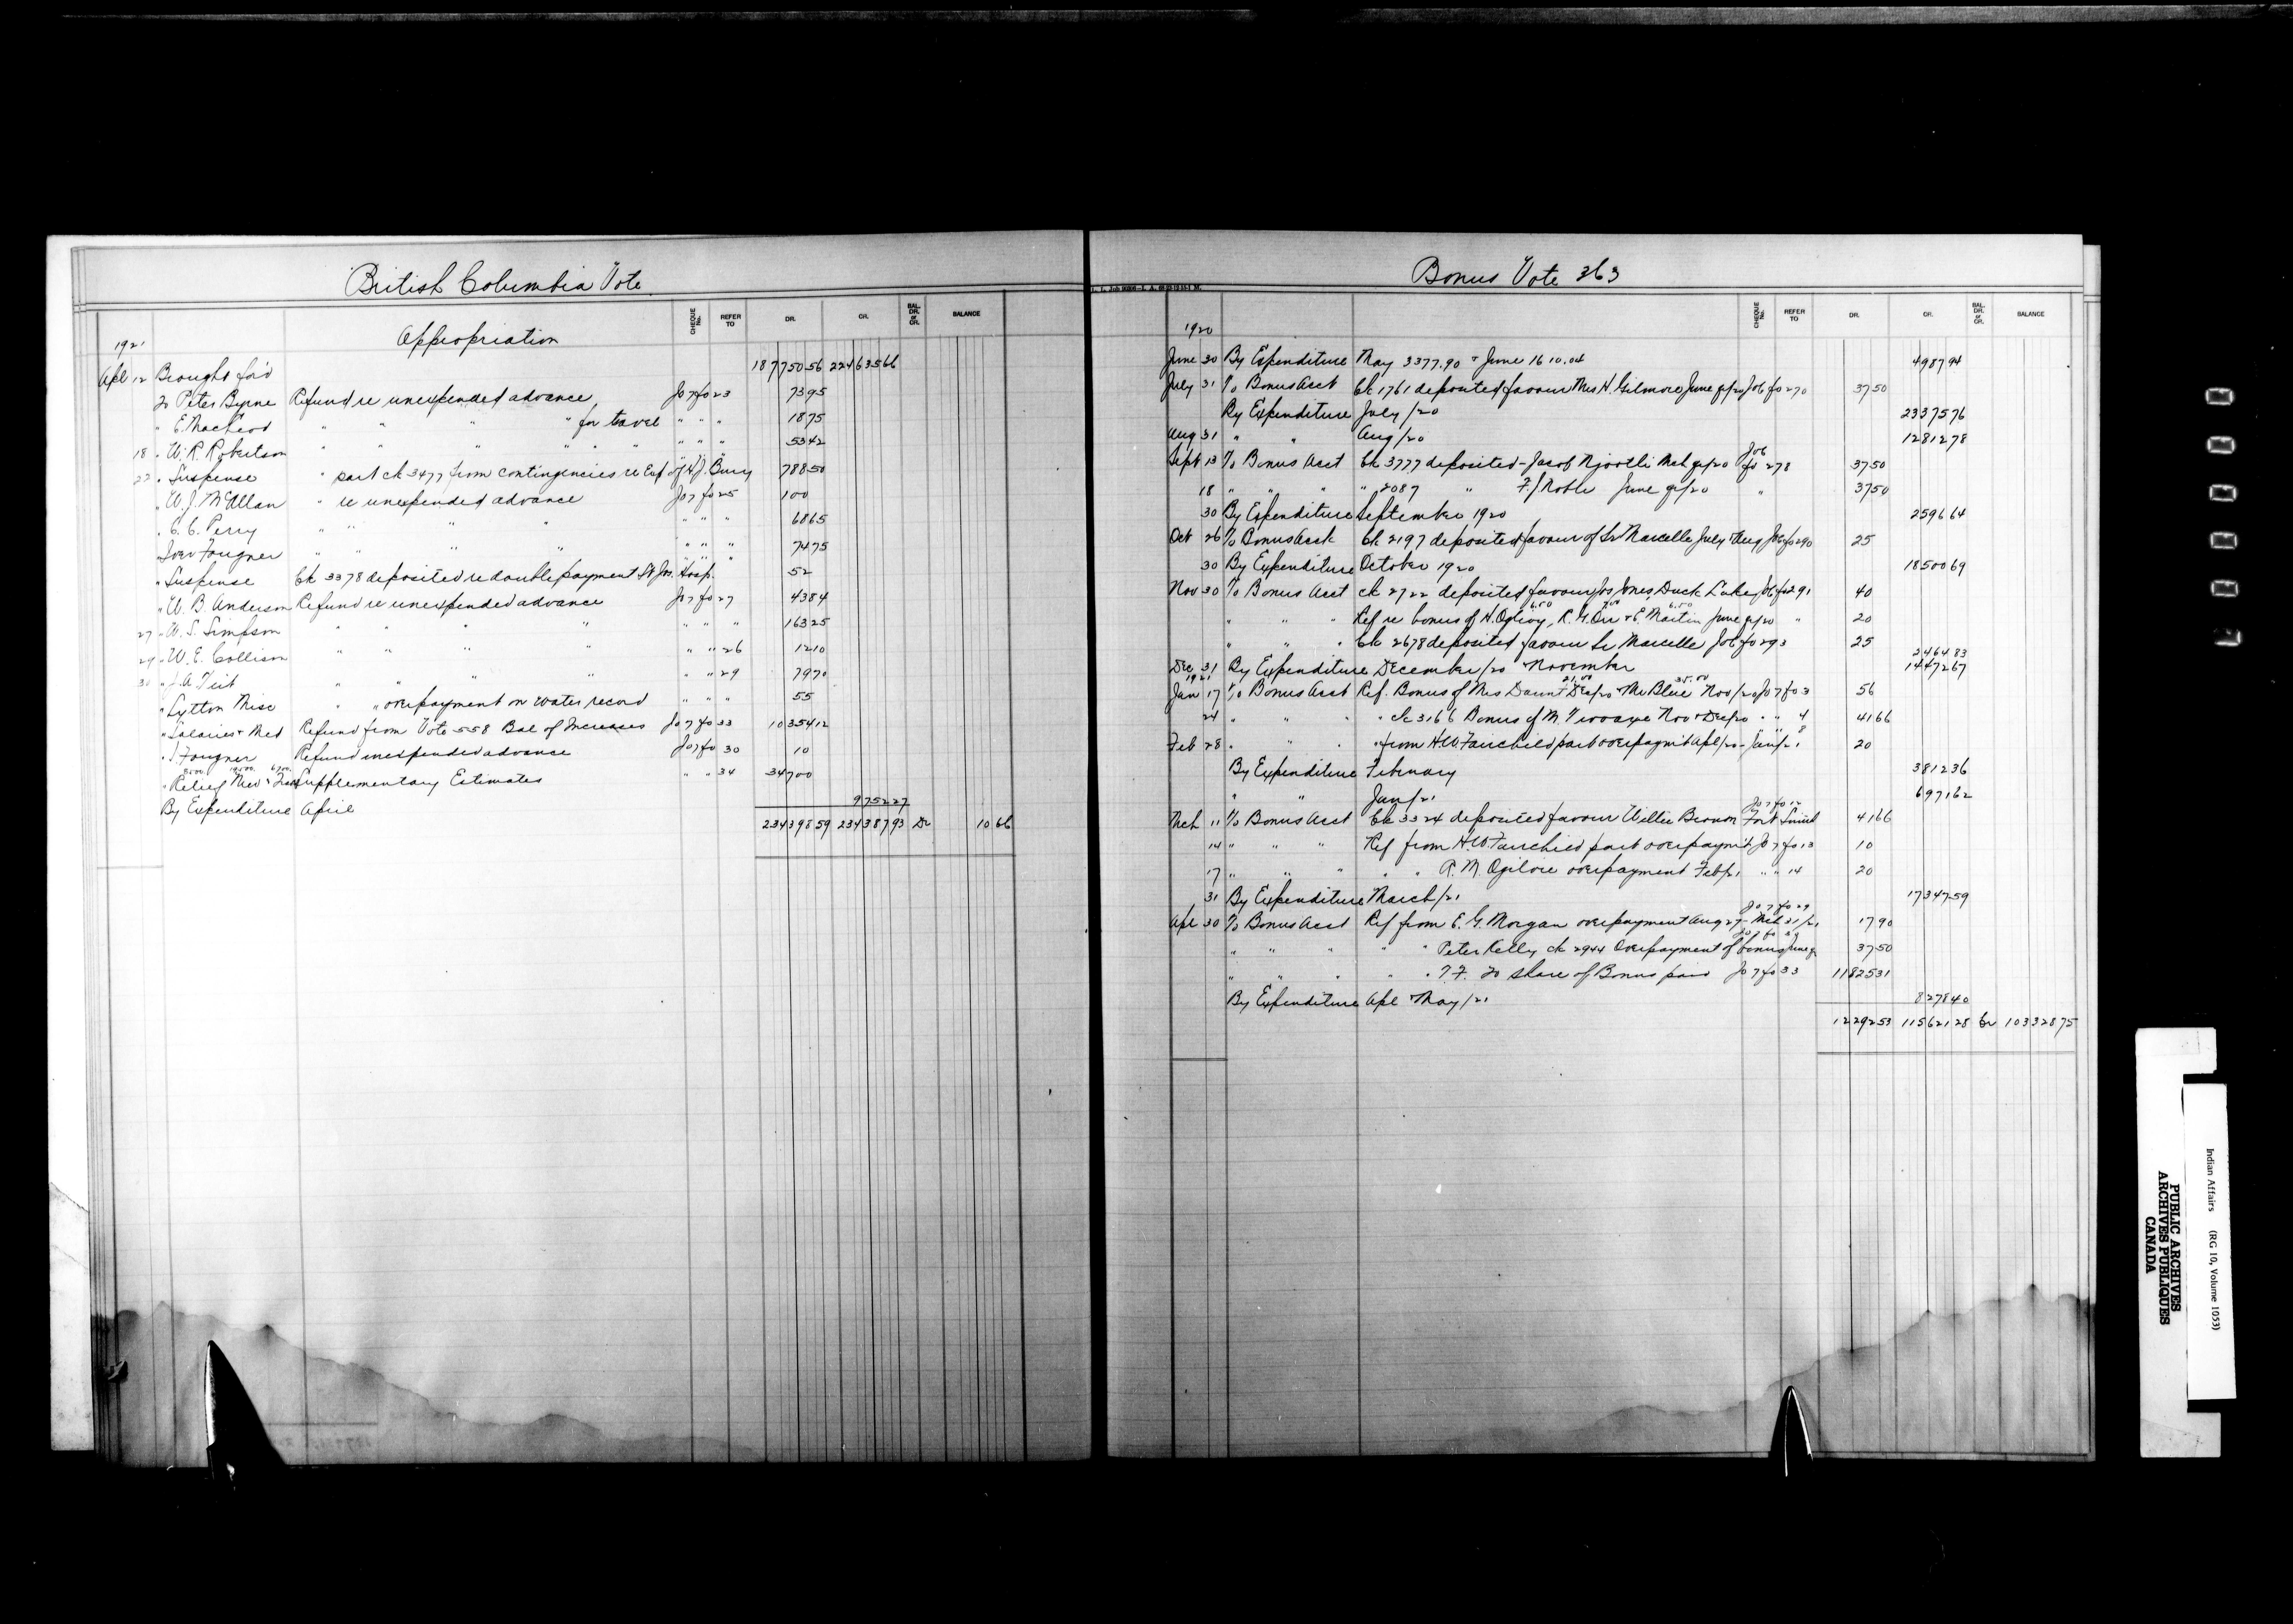 British Columbia Vote
CHEQUE No. REFER TO DR. CR. BAL. DR. or CR. BALANCE
Appropriation
1921
Apl 12 Brought for'd 187750 56 224635 66
To Peter Byrne Refund re unexpended advance Jo 7 fo 23 73 95
" E. MacLeod " " " " for travel " " " 18 75
18 " W. R. Robertson " " " " " " " " " 53 42
22 " Suspense " part ck 3477 from contingencies re Exp of H. J. Bury 788 50
" W. J. McAllan " re unexpended advance Jo 7 fo 25 1 00
" C. C. Perry " " " " " " " 68 65
" Iver Fougner " " " " " " " 74 75
" Suspense Ck 3378 deposited re double payment St Jos. Hosp. 52
" W. B. Anderson Refund re unexpended advance Jo 7 fo 27 43 84
27 " W. S. Simpson " " " " " " " 163 25
29 " W. E. Collison " " " " " " 26 12 10
30 " J. A. Teit " " " " " 29 79 70
" Lytton Misc " " overpayment on water record " " " 55
" Salaries & Med Refund from Vote 558 Bal of Increases Jo 7 fo 33 10354 12
" I Fougner Refund unexpended advance Jo 7 fo 30 10
" Relief Med & Supplementary Estimates " " 34 34700
By Expenditure April 9752 27
234398 59 234387 93 Dr 10 66
Bonus Vote 363
CHEQUE No. REFER TO DR. CR. BAL. DR. or CR. BALANCE
1920
June 30 By Expenditure May 3377.90 & June 1610.04 4987 94
July 31 To Bonus Acct Ck 1761 deposited favour Mrs H. Gilmore June qr/20 Jo 6 fo 270 37 50
By Expenditure July /20 23375 76
Aug 31 " " Aug /20 12812 78
Sept 13 To Bonus Acct Ck 3777 deposited - Jacob Njootli Mch qr/20 Jo 6 fo 278 37 50
18 " " " " 2087 " F. J. Roble June qr/20 " 37 50
30 By Expenditure September 1920 2596 64
Oct 26 To Bonus Acct Ck 2197 deposited favour of Sr Marcelle July & Aug Jo 6 fo 290 25
30 By Expenditure October 1920 18500 69
Nov 30 To Bonus Acct ck 2722 deposited favour Jos Jones, Duck Lake Jo 6 fo 291 40
6.50 7.00 6.50
" " " Ref re bonus of H. Ogilvy, R. G. Orr & E. Martin June qr/20 " 20
" " " Ck 2678 deposited favour Sr Marcelle Jo 6 fo 293 25
2464 83
Dec 31 By Expenditure December /20 & November 14472 67
1921
21.00 35.00
Jan 17 To Bonus Acct Ref. Bonus of Mrs Daunt Dec/20 & Mr Blue Nov/20 Jo 7 fo 3 56
24 " " " " ck 3166 Bonus of M. Nov & Dec/20 " " 4 41 66
Feb 28 " " " " from H.W. Fairchild part overpaym't Apl/20 - Jan/21 8 20
By Expenditure February 3812 36
" " Jan /21 6971 62
Jo 7 fo 12
Mch 11 To Bonus Acct Ck 3324 deposited favour Willie Brown Fort Smith 41 66
14 " " " Ref from H.W. Fairchild part overpaym't Jo 7 fo 13 10
17 " " " " " R. M. Ogilvie overpayment Feb/21 " " 14 20
31 By Expenditure March /21 17347 59
Jo 7 fo 29
Apl 30 To Bonus Acct Ref from E. G. Morgan overpayment Aug 27 - Mch 31/21 17 90
" " " " " Peter Kelly ck 2944 Overpayment of bonus June qr 37 50
" " " " " T. F. To share of Bonus paid Jo 7 fo 33 11825 31
By Expenditure Apl & May /21 8278 40
12292 53 115621 28 Cr 103328 75
Indian Affairs (RG 10, Volume 1053)
PUBLIC ARCHIVES
ARCHIVES PUBLIQUES
CANADA